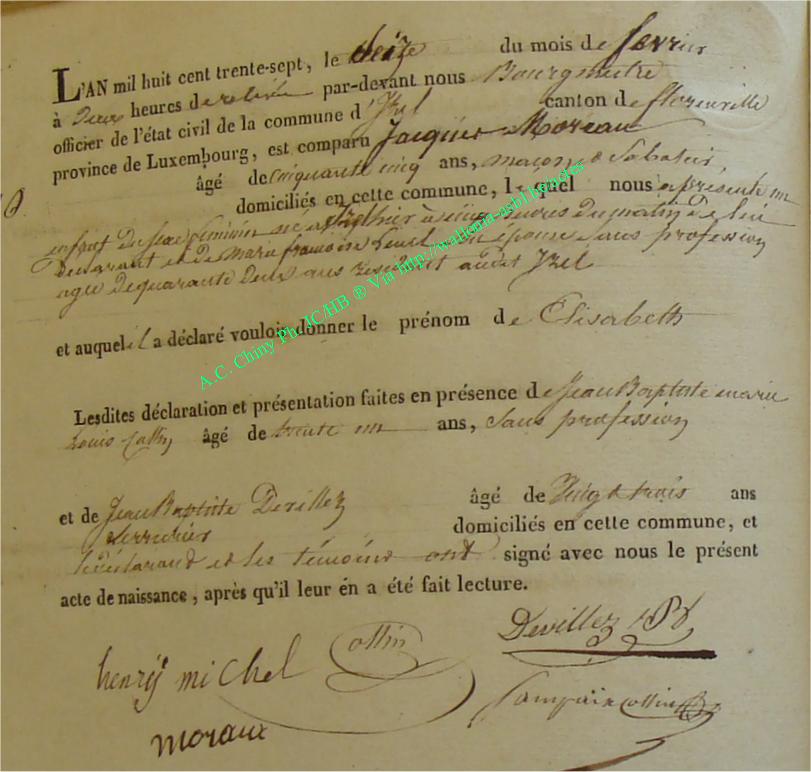 L'AN mil huit cent trente-sept, le seize du mois de fevrier
à deux heures de relevée par-devant nous Bourgmestre
officier de l'état civil de la commune d'Izel canton de florenville
province de Luxembourg, est comparu Jacques Moreau
âgé de cinquante cinq ans, maçon & Sabotier
domiciliés en cette commune, lequel nous a présenté un
enfant du sexe feminin né à heures du matin de lui
declarant et de marie francoise son épouse sans profession
agée de quarante deux ans résident audit Izel
et auquel il a déclaré vouloir donner le prénom de Elisabeth
Lesdites déclaration et présentation faites en présence de Jean Baptiste marie
Louis Collin âgé de trente un ans, sans profession
et de Jean Baptiste Devillez âgé de vingt trois ans
serrurier domiciliés en cette commune, et
le déclarand et les témoins ont signé avec nous le présent
acte de naissance, après qu'il leur en a été fait lecture.
Collin Devillez JBt
henry michel
Collin
moraux
A.C. Chiny Ph. JC/HB ® Via http://wallonia-asbl.be/actes